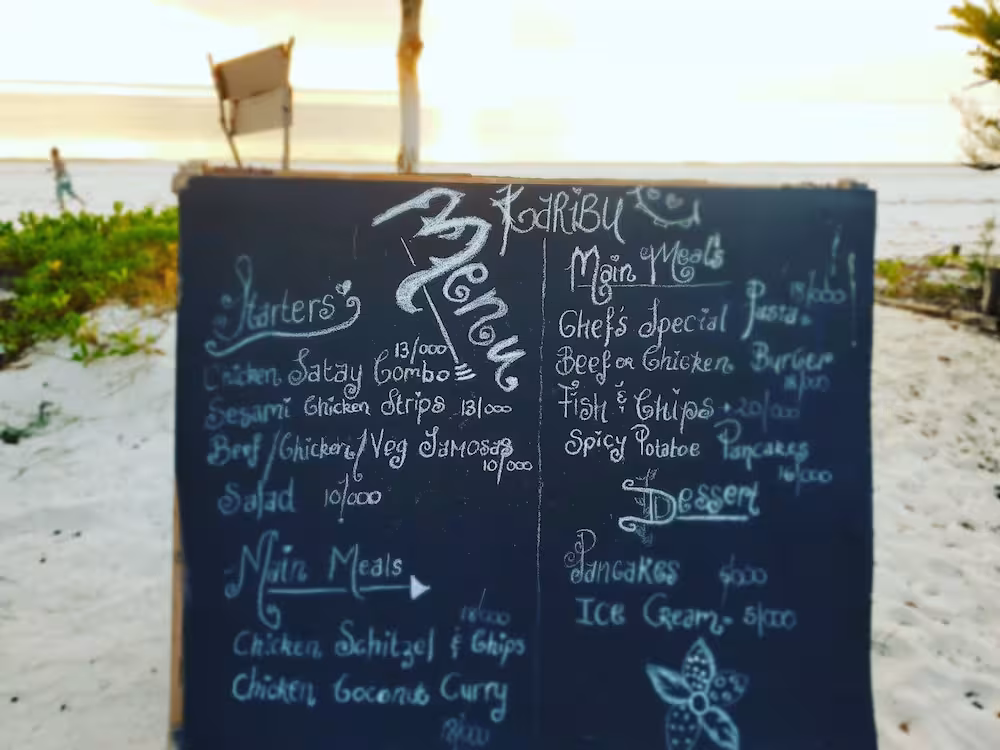 Karibu
Menu
Starters
Chicken Satay Combo 13/000
Sesami Chicken Strips 13/000
Beef/Chicken/Veg Samosas
10/000
Salad 10/000
Main Meals
Chicken Schitzel & Chips
Chicken Coconut Curry
Main Meals
Chef's Special Pasta.
Beef or Chicken Burger
Fish & Chips - 20/000
Spicy Potatoe Pancakes
16/000
Dessert
Pancakes
Ice Cream - 5/000